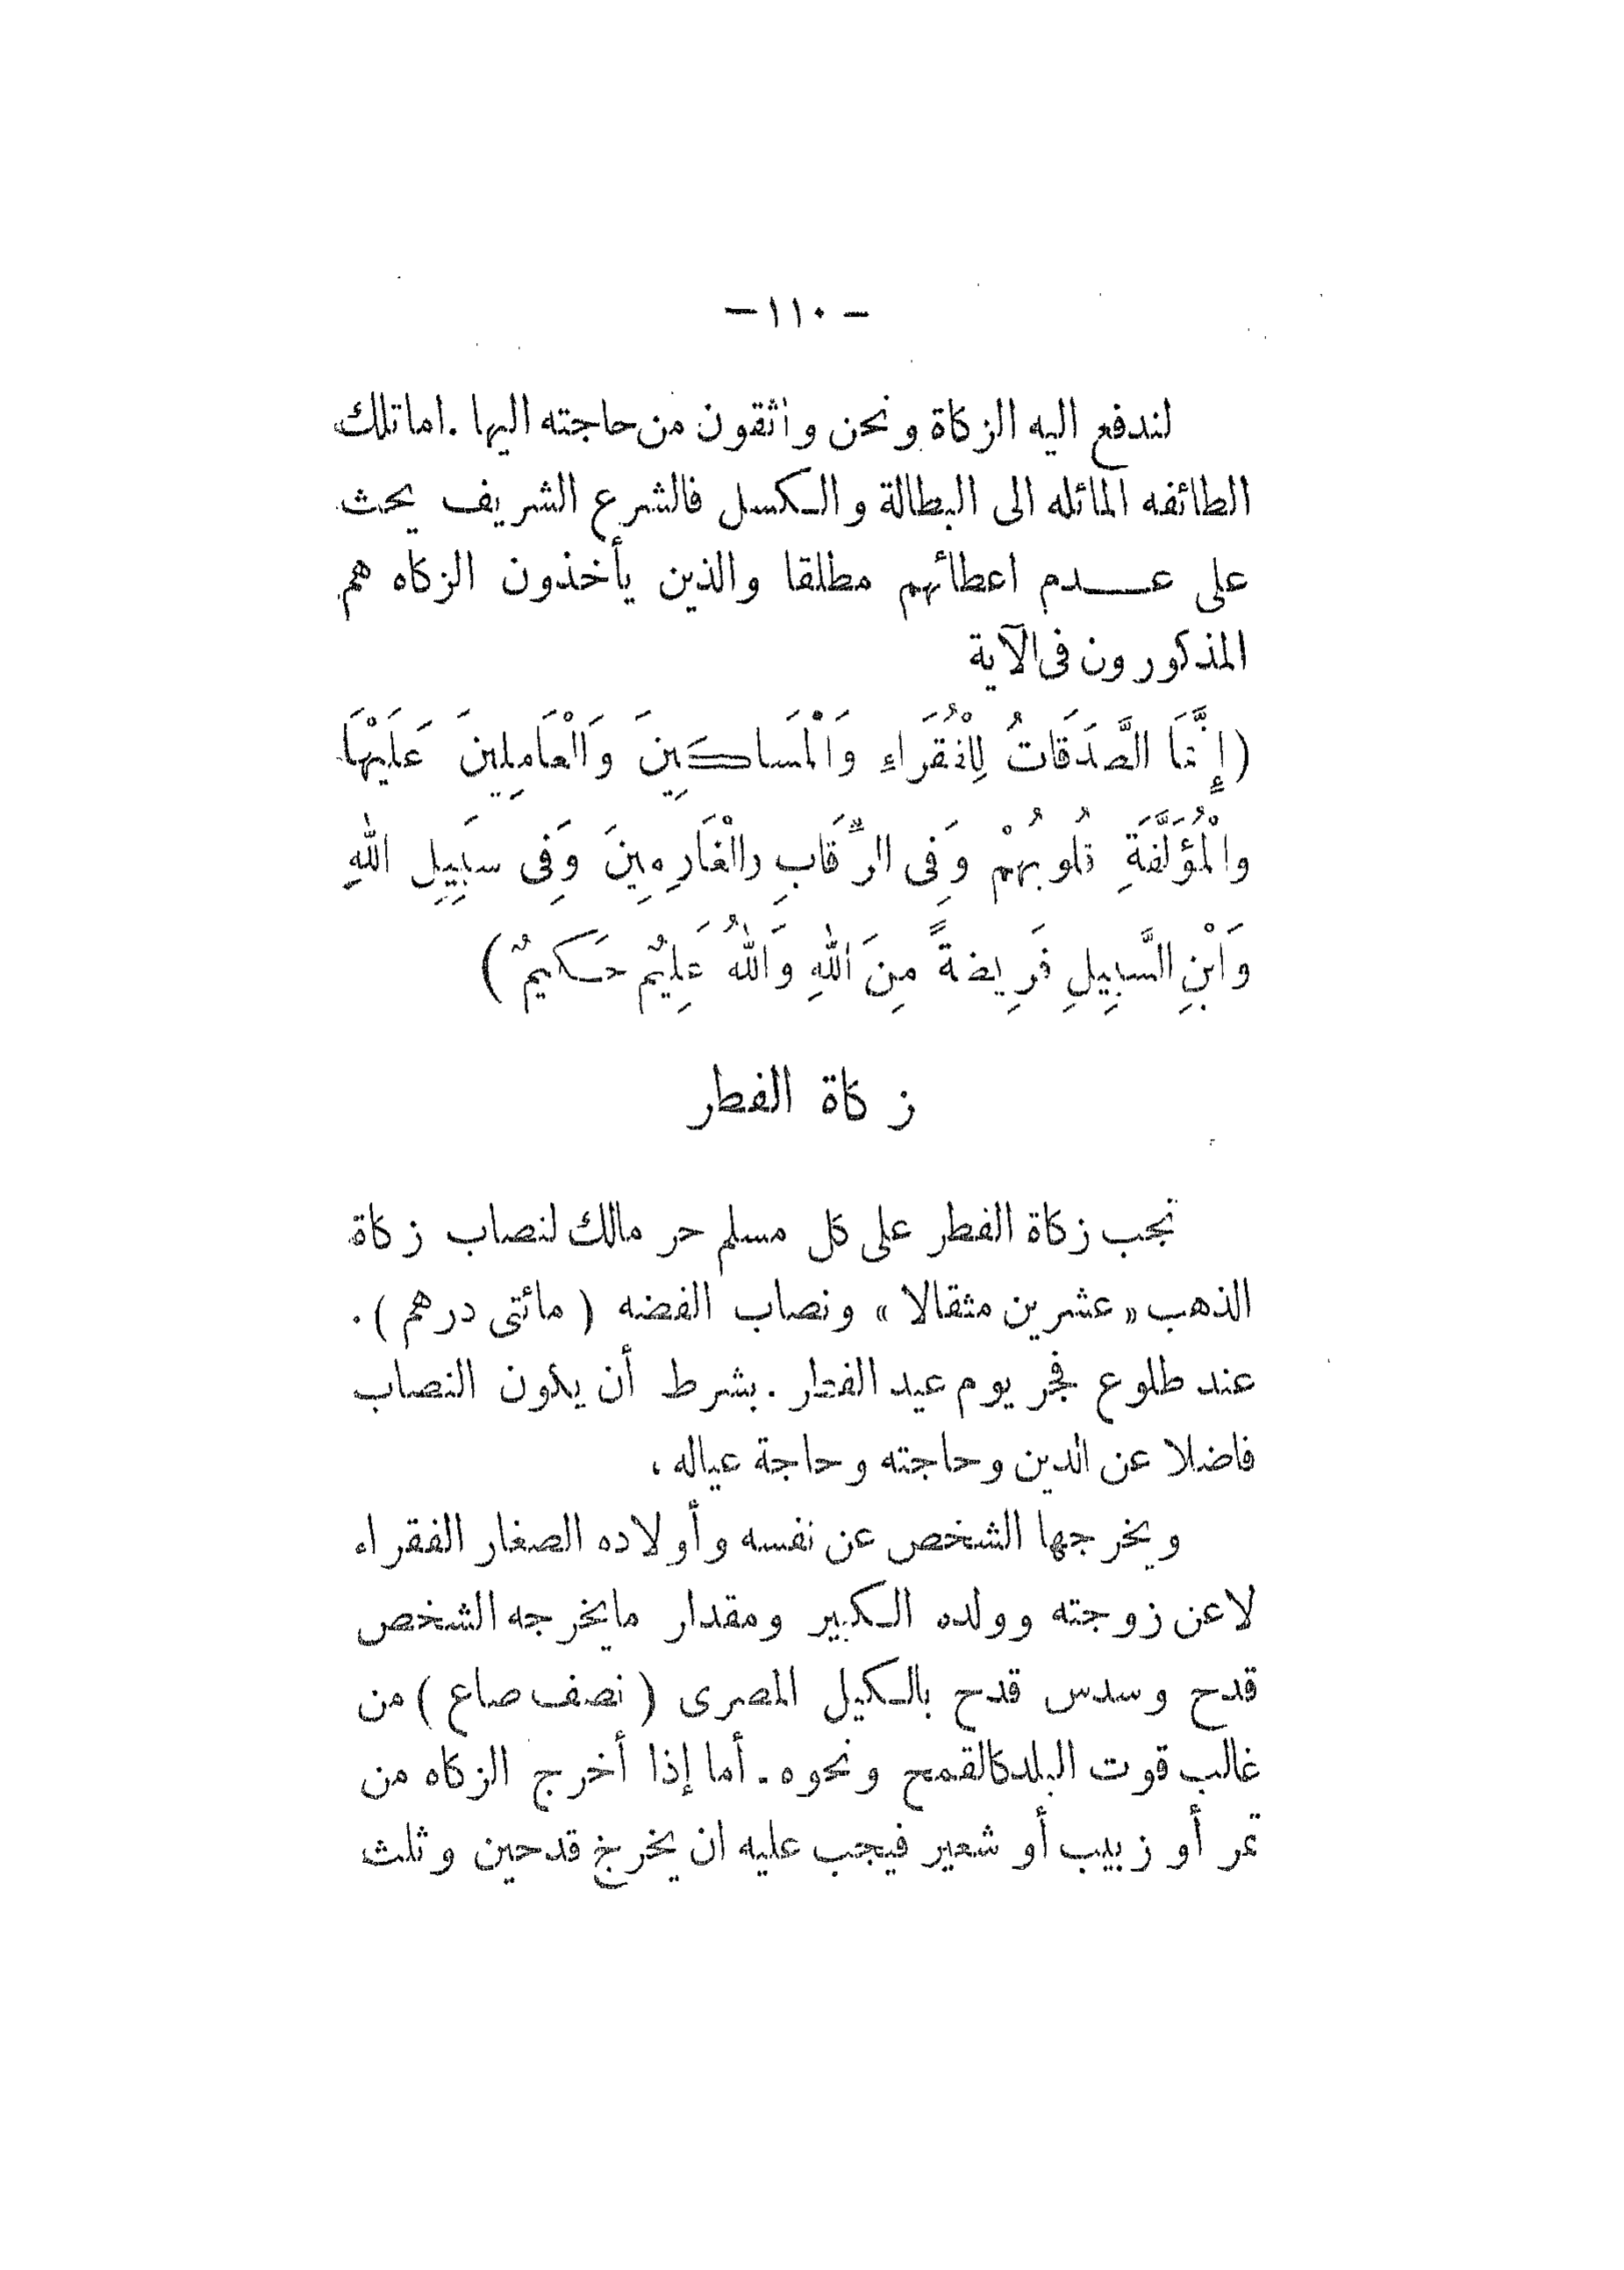 — ١١٠ —
لندفع اليه الزكاة ونحن واثقون من حاجته اليها . اما تلك
الطائفه المائله الى البطالة والكسل فالشرع الشريف يحث
على عـــدم اعطائهم مطلقا والذين يأخذون الزكاه هم
المذكورون فى الآية
(إِنَّمَا الصَّدَقَاتُ لِلْفُقَرَاءِ وَالْمَساكِينَ وَالْعَامِلِينَ عَلَيْهَا
والْمُؤَلَّفَةِ قُلوبُهُمْ وَفِى الرِّقَابِ والْغَارِمِينَ وَفِى سَبِيلِ اللهِ
وَابْنِ السَّبِيلِ فَرِيضةً مِنَ اللهِ وَاللهُ عَلِيمٌ حَكيمٌ)
زكاة الفطر
تجب زكاة الفطر على كل مسلم حر مالك لنصاب زكاة
الذهب «عشرين مثقالا» ونصاب الفضه (مائتى درهم).
عند طلوع فجر يوم عيد الفطر . بشرط أن يكون النصاب
فاضلا عن الدين وحاجته وحاجة عياله ،
ويخرجها الشخص عن نفسه وأولاده الصغار الفقراء
لاعن زوجته وولده الكبير ومقدار مايخرجه الشخص
قدح وسدس قدح بالكيل المصرى (نصف صاع) من
غالب قوت البلد كالقمح ونحوه . أما إذا أخرج الزكاه من
تمر أو زبيب أو شعير فيجب عليه ان يخرج قدحين وثلث